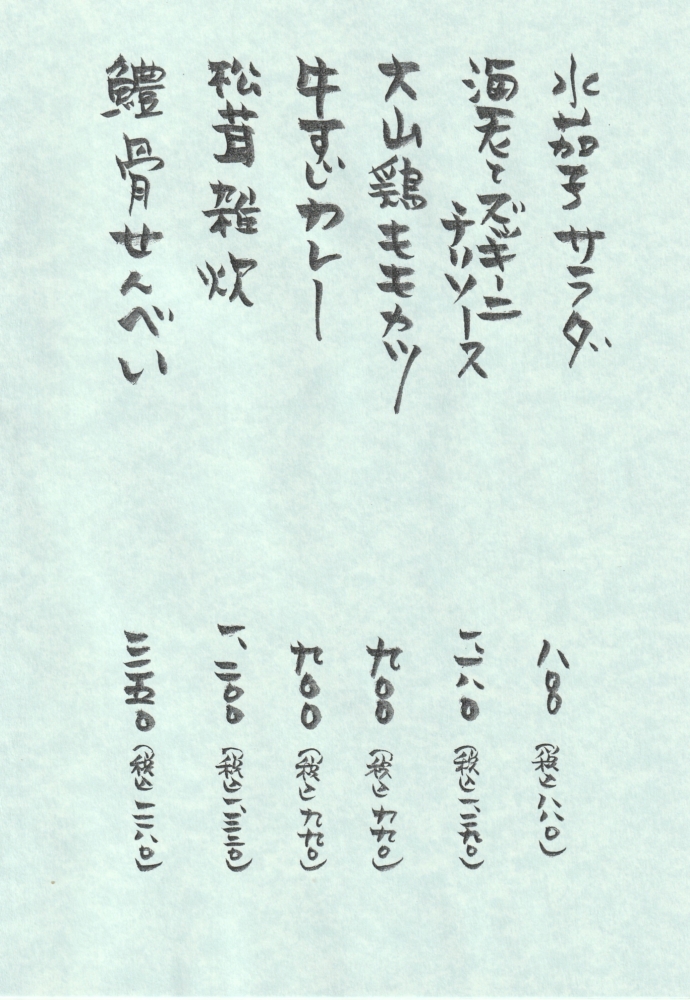 水茄子サラダ 八〇〇（税込八八〇）
海老とズッキーニ
チリソース 一、一八〇（税込一、二九〇）
大山鶏ももカツ 九〇〇（税込九九〇）
牛すじカレー 九〇〇（税込九九〇）
松茸雑炊 一、二〇〇（税込一、三二〇）
鱧骨せんべい 三五〇（税込三八〇）